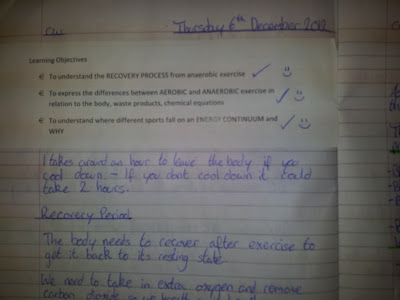 CW
Thursday 6th December 2012
Learning Objectives
€ To understand the RECOVERY PROCESS from anaerobic exercise
€ To express the differences between AEROBIC and ANAEROBIC exercise in
relation to the body, waste products, chemical equations
€ To understand where different sports fall on an ENERGY CONTINUUM and
WHY
I takes around an hour to leave the body if you
cool down. - If you dont cool down it could
take 2 hours.
Recovery Period
The body needs to recover after exercise to
get it back to its resting state.
We need to take in extra oxygen and remove
carbon dioxide so we